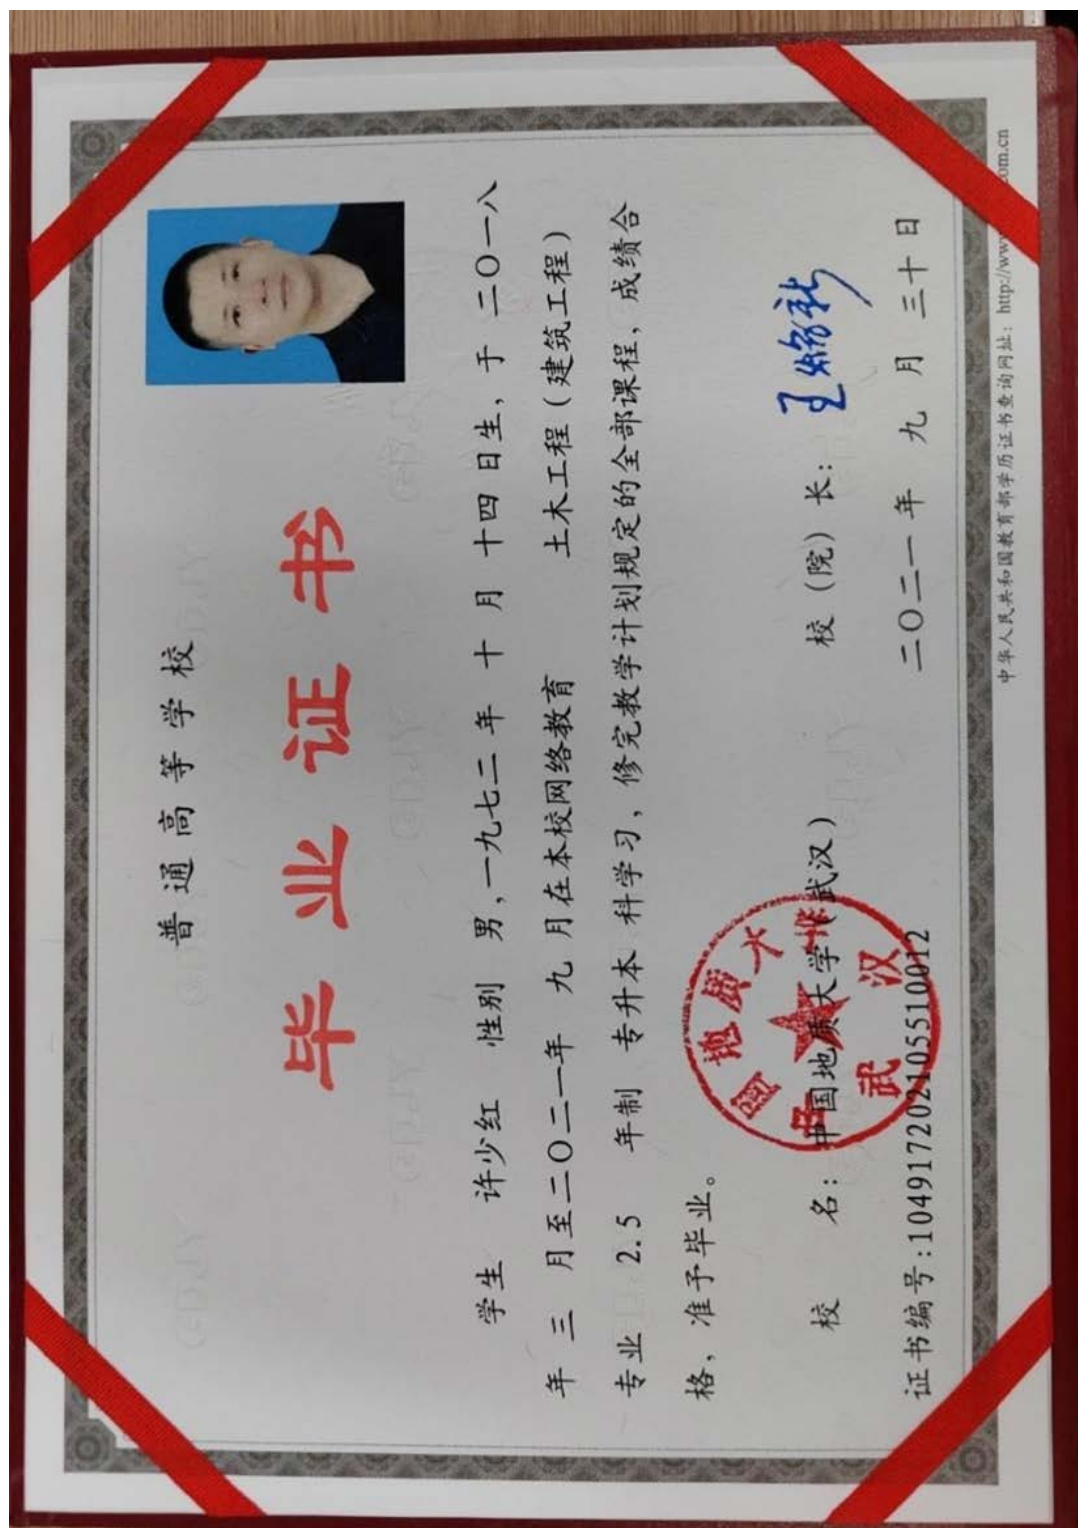 普通高等学校
毕业证书
学生 许少红 性别 男,一九七二年 十 月 十四 日生,于 二〇一八
年 三 月至二〇二一年 九 月在本校网络教育 土木工程(建筑工程)
专业 2.5 年制 专升本 科学习,修完教学计划规定的全部课程,成绩合
格,准予毕业。
校 名:中国地质大学(武汉) 校(院)长:
证书编号:104917202105510012 二〇二一年 九 月 三十 日
中国地质大学
武汉
中华人民共和国教育部学历证书查询网址:http://www. .com.cn